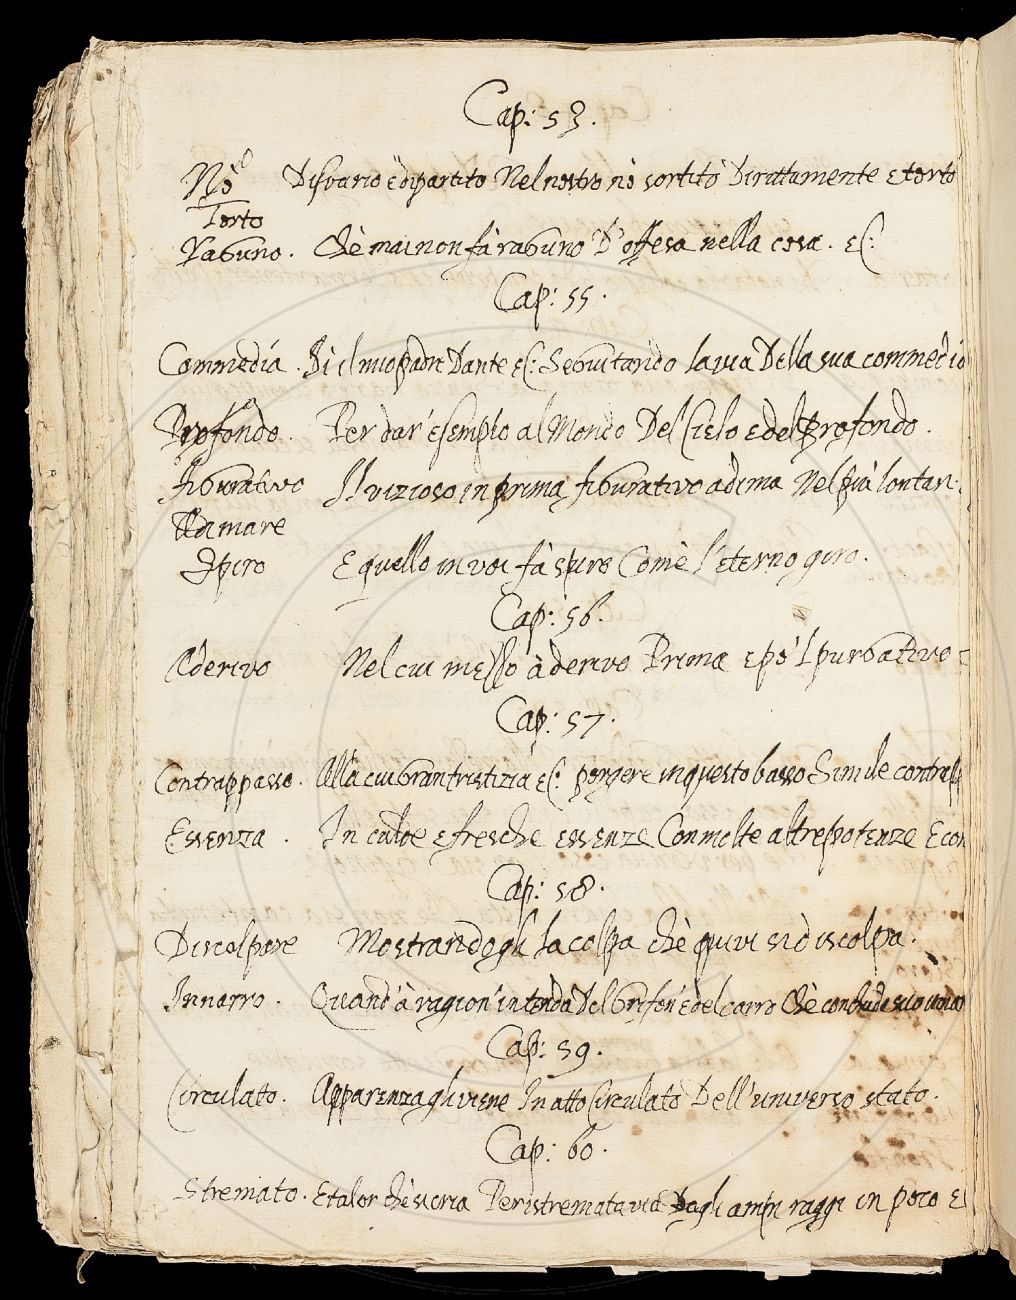 Cap: 53.
Nō Disvario è dipartito Nel nostro nō sortito Dirittamente e torto
Torto
Rabuno. Chè mai non fà rabuno D'offesa nella cosa. &c:
Cap: 55.
Commedia. Di il mio padre Dante &c: Seguitando la via Della sua commedia
Profondo. Per dar' esemplo al Mondo Del Cielo e del Profondo.
Figurativo Il vizioso in prima figurativo adima Nel più lontan
Adimare
Spiro E quello in voi fà spiro Com'è l'eterno giro.
Cap: 56.
Aderivo Nel cui messo àderivo Prima e pō'l purgativo
Cap: 57.
Contrappasso. Alla cui gran tristizia &c: porgere in questo basso Simile contrap
Essenza. In calde e fresche essenze Con molte altre potenze E con
Cap: 58.
Discolpare Mostrandogli la colpa chè quivi si discolpa.
Innarro. Quand' à ragion' intenda Del Grifon' e del carro Chè
Cap: 59.
Circulato. Apparenza gli viene In atto Circulato Dell' universo stato.
Cap: 60.
Stremato. E talor chè varia Per istremata via Dagli ampi raggi in poco e